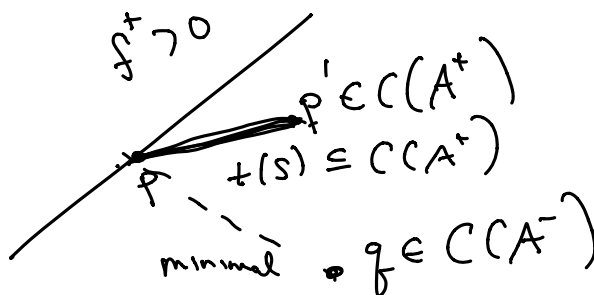 f⁺ > 0
p' ∈ C(A⁺)
t(s) ⊆ C(A⁺)
p
minimal
q ∈ C(A⁻)